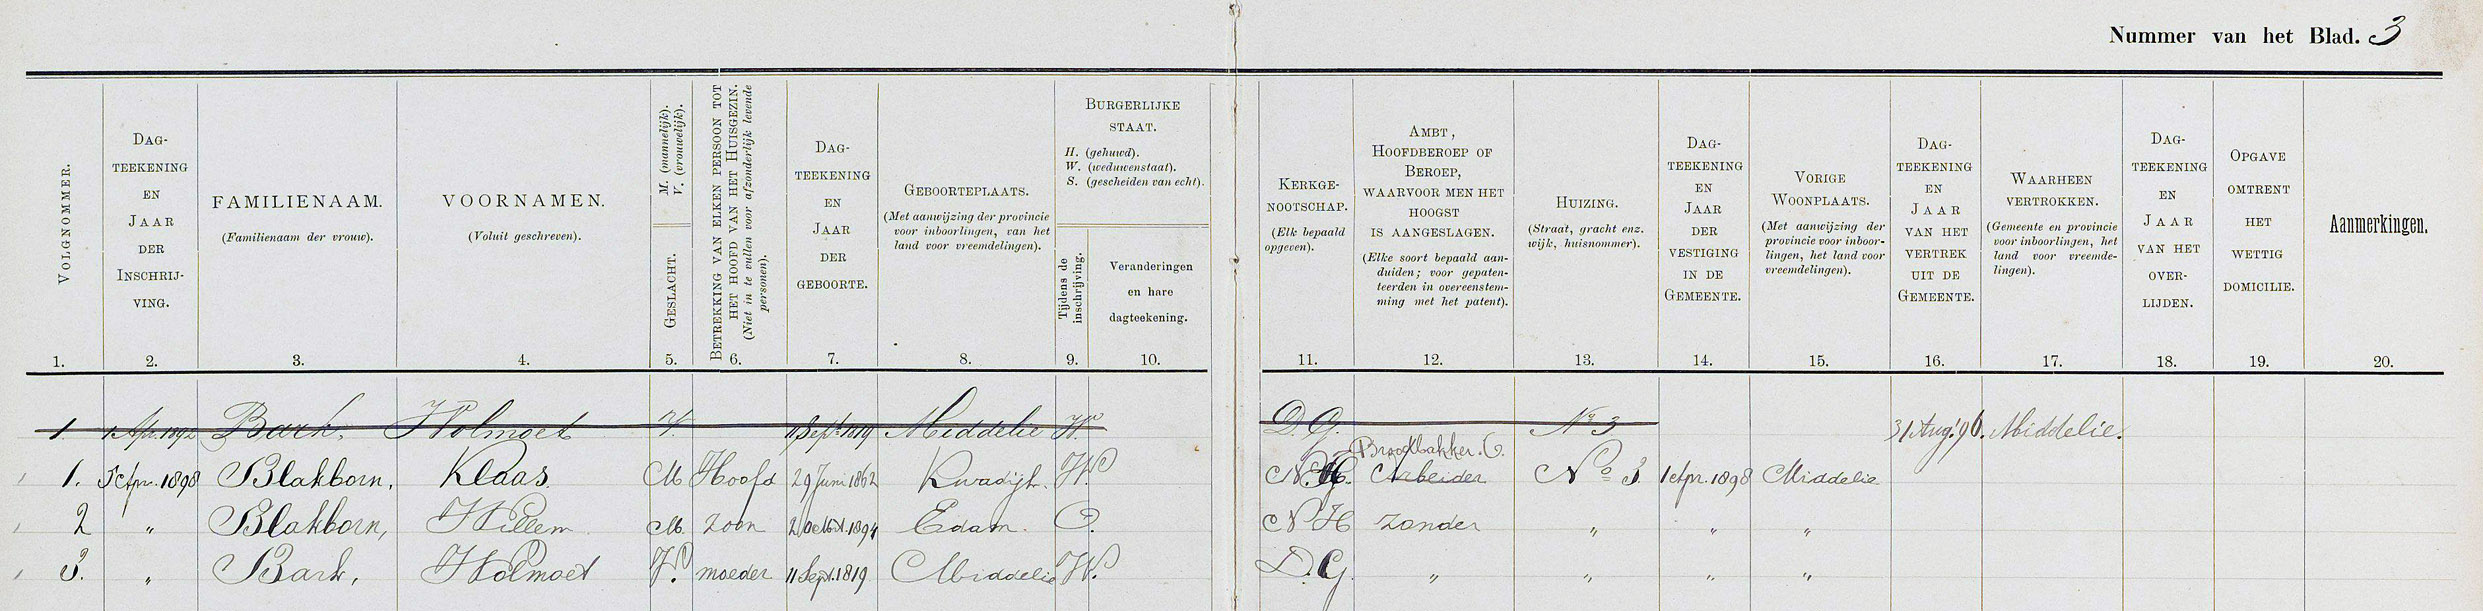 Nummer van het Blad. 3
VOLGNOMMER.
DAG-
TEEKENING
EN
JAAR
DER
INSCHRIJ-
VING.
FAMILIENAAM.
(Familienaam der vrouw).
VOORNAMEN.
(Voluit geschreven).
M. (mannelijk).
V. (vrouwelijk).
GESLACHT.
BETREKKING VAN ELKEN PERSOON TOT
HET HOOFD VAN HET HUISGEZIN.
(Niet in te vullen voor afzonderlijk levende
personen).
DAG-
TEEKENING
EN
JAAR
DER
GEBOORTE.
GEBOORTEPLAATS.
(Met aanwijzing der provincie
voor inboorlingen, van het
land voor vreemdelingen).
BURGERLIJKE
STAAT.
H. (gehuwd).
W. (weduwenstaat).
S. (gescheiden van echt).
Tijdens de
inschrijving.
Veranderingen
en hare
dagteekening.
KERKGE-
NOOTSCHAP.
(Elk bepaald
opgeven).
AMBT,
HOOFDBEROEP OF
BEROEP,
WAARVOOR MEN HET
HOOGST
IS AANGESLAGEN.
(Elke soort bepaald aan-
duiden; voor gepaten-
teerden in overeenstem-
ming met het patent).
HUIZING.
(Straat, gracht enz.
wijk, huisnommer).
DAG-
TEEKENING
EN
JAAR
DER
VESTIGING
IN DE
GEMEENTE.
VORIGE
WOONPLAATS.
(Met aanwijzing der
provincie voor inboor-
lingen, het land voor
vreemdelingen).
DAG-
TEEKENING
EN
JAAR
VAN HET
VERTREK
UIT DE
GEMEENTE.
WAARHEEN
VERTROKKEN.
(Gemeente en provincie
voor inboorlingen, het
land voor vreemde-
lingen).
DAG-
TEEKENING
EN
JAAR
VAN HET
OVER-
LIJDEN.
OPGAVE
OMTRENT
HET
WETTIG
DOMICILIE.
Aanmerkingen.
1. 2. 3. 4. 5. 6. 7. 8. 9. 10. 11. 12. 13. 14. 15. 16. 17. 18. 19. 20.
1 1 Apr. 1892 Bark, Holmoet V. 11 Sept. 1819 Middelie W. D.G. No 3 31 Aug. 96. Middelie.
Broodbakker.
1. 5 Apr. 1898 Blakborn, Klaas. M Hoofd 29 Juni 1862 Kwadijk. W. N.H. Arbeider No 3 1 Apr. 1898 Middelie
2 " Blakborn, Willem M. zoon 2 Octob. 1894 Edam. O. N H zonder " " "
3. " Bark, Holmoet V. moeder 11 Sept. 1819 Middelie W. D.G. " " " "